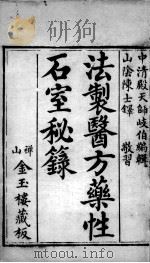 中清殿天師岐伯編輯
山陰陳士鐸 敬習
法製醫方藥性
石室秘籙
禪山金玉樓藏板